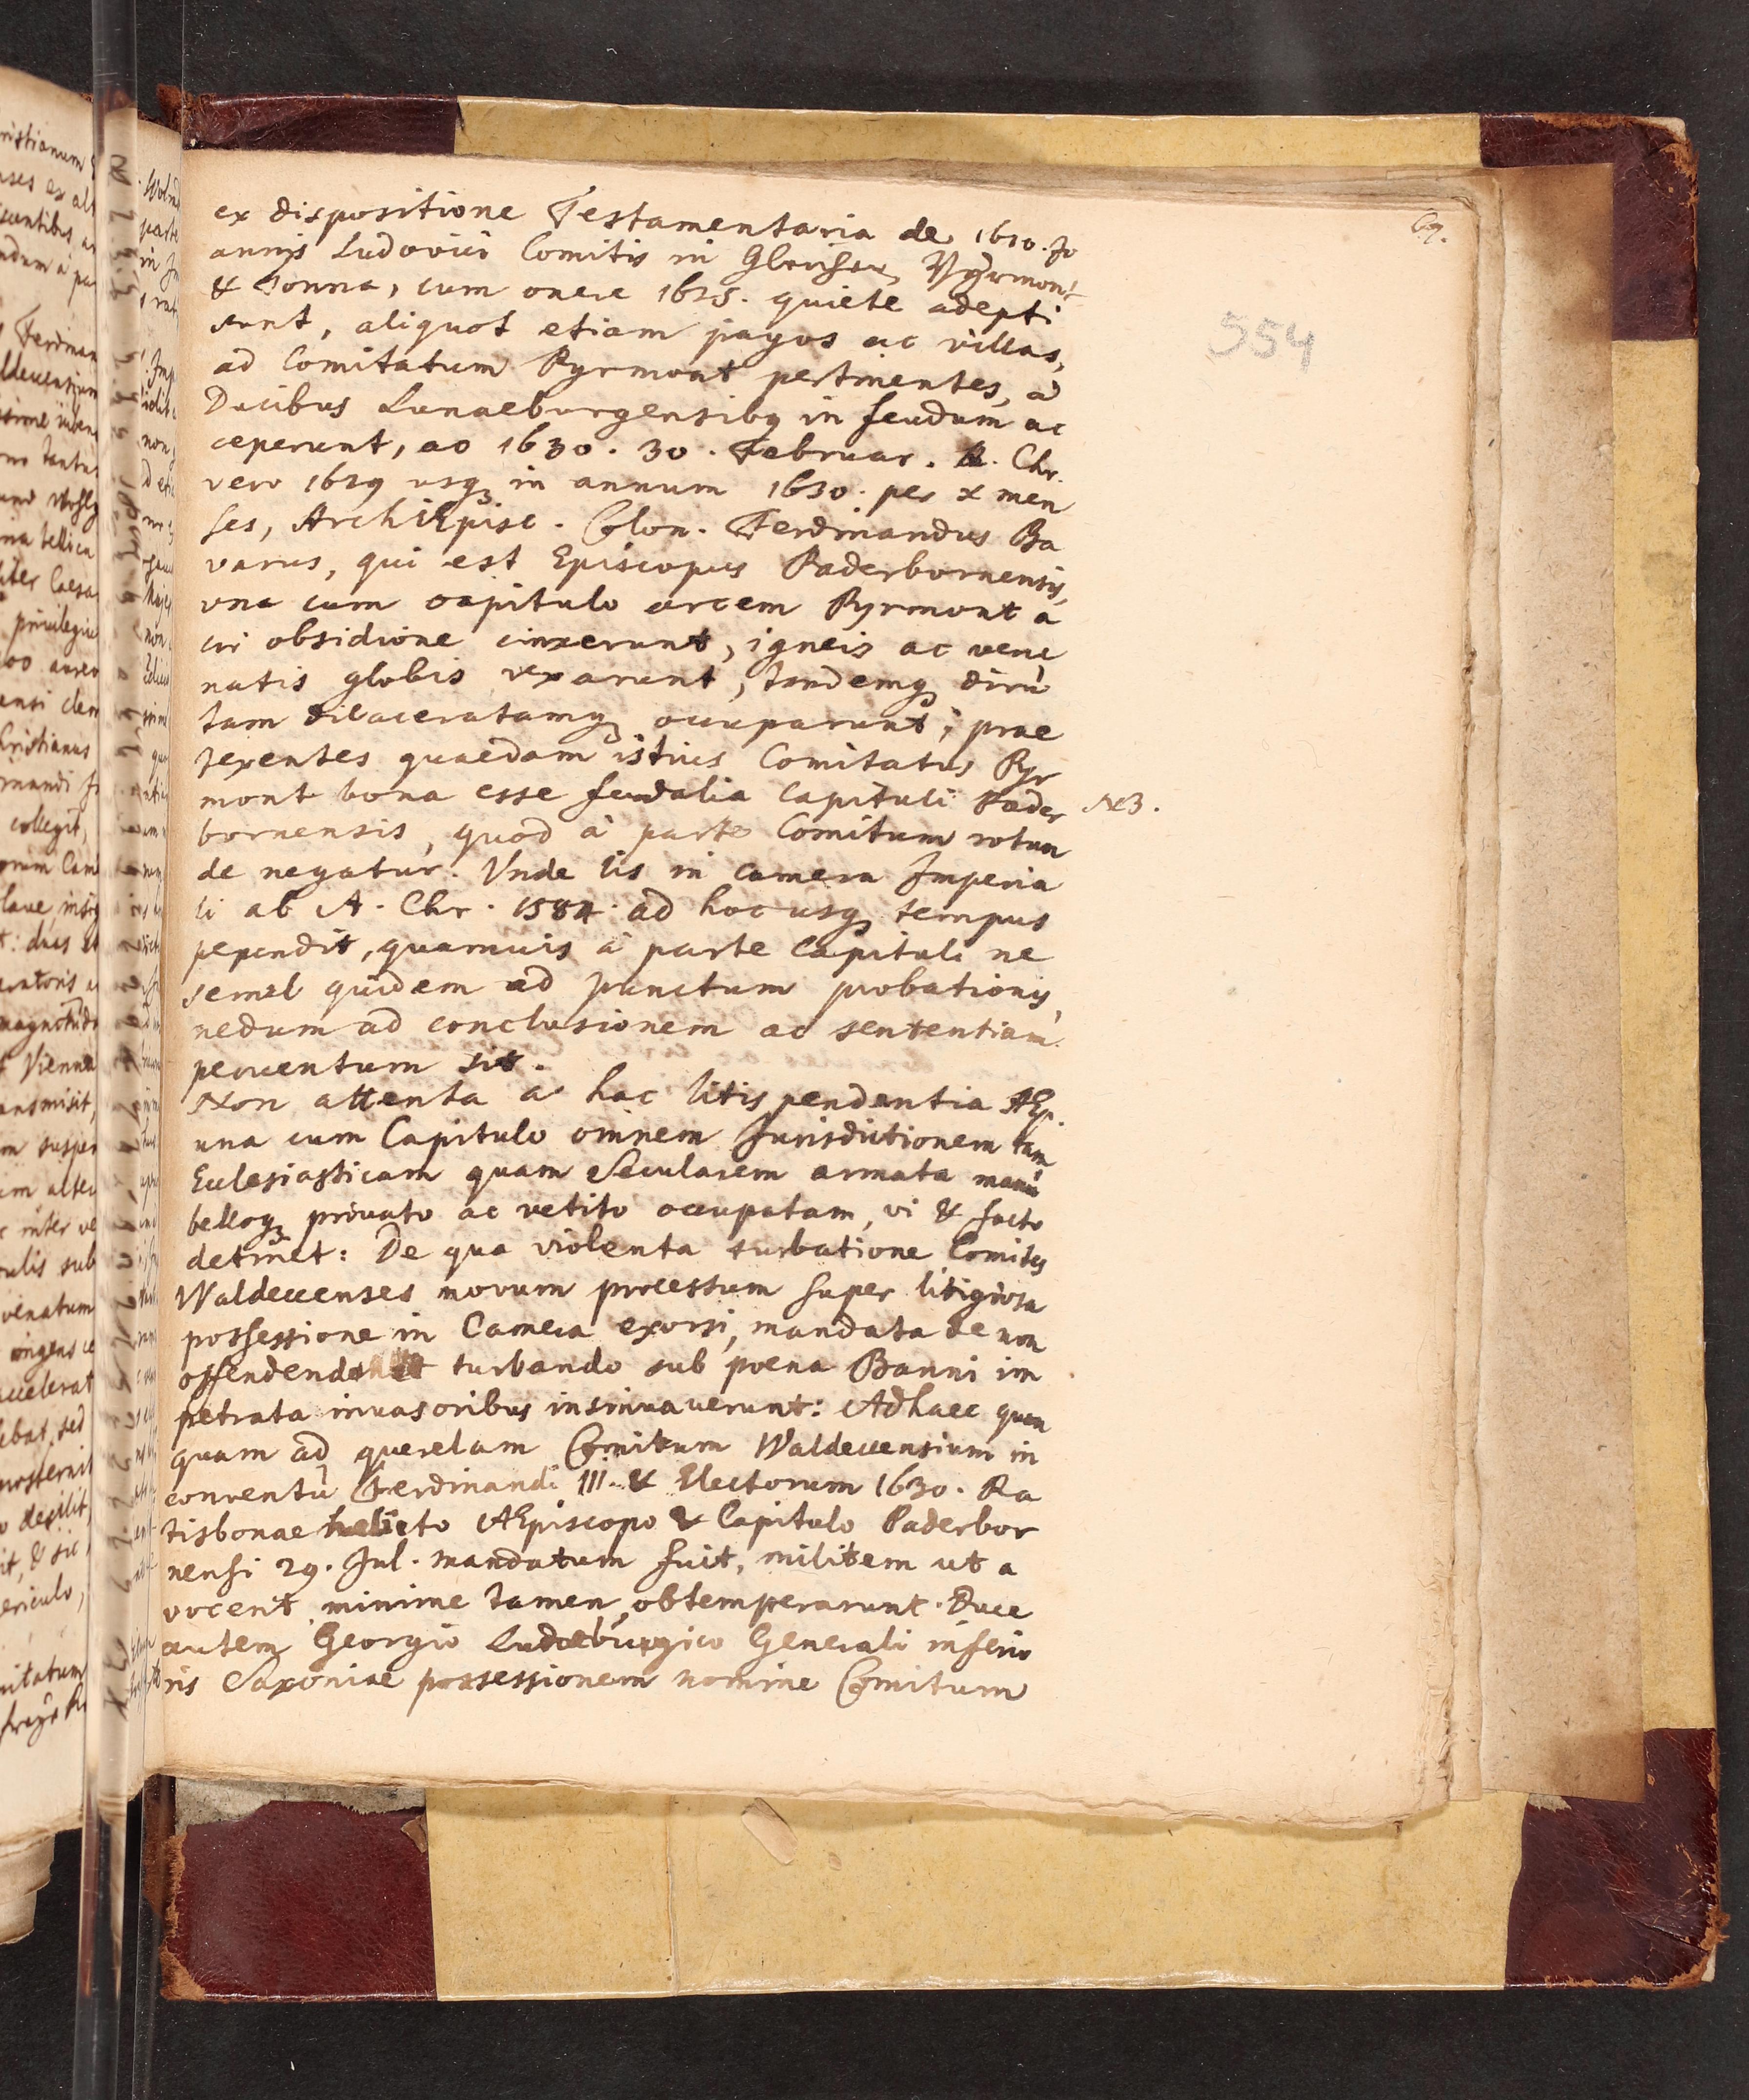 69.
554
ex dispositione Testamentaria de 1610. Jo
annis Ludovici Comitis in Gleichen, Pyrmont
& Tonna, cum onere 1625. quiete adepti
sunt, aliquot etiam pagos ac villas,
ad Comitatum Pyrmont pertinentes, a
Ducibus Lunaeburgensibq in feudum ac
ceperunt, ao 1630. 30. Februar. A. Chr.
vero 1629 usqȝ in annum 1630. per x men
ses, ArchiEpisc. Colon. Ferdinandus Ba
varus, qui est Episcopus Paderbornensis,
vna cum capitulo arcem Pyrmont a
cri obsidione cinxerunt, igneis ac vene
natis globis vexarunt, tandemqȝ diru
tam dilaceratamqȝ occuparunt; prae
texentes quaedam istius Comitatus Pyr
mont bona esse feudalia Capituli Pader
NB.
bornensis, quod à parte Comitum rotun
de negatur. Vnde lis in camera Imperia
li ab A. Chr. 1584. ad hoc usqȝ tempus
pependit, quamuis à parte Capituli ne
semel quidem ad punctum probationis,
nedum ad conclusionem ac sententiam
peruentum sit.
Non attenta a hac litis pendentia AEp.
una cum Capitulo omnem Jurisdictionem tam
Ecclesiasticam quam Secularem armata manu
belloqȝ priuato ac vetito occupatam, vi & facto
detinet: De qua violenta turbatione Comites
Waldeccenses novum processum super litigiosa
possessione in Camera exorsi, mandata de non
offendendo et turbando sub poena Banni im
petrata inuasoribus insinuauerunt: Adhaec quan
quam ad querelam Comitum Waldeccensium in
conventu Ferdinandi III. & Electorum 1630. Ra
tisbonae AEpiscopo & Capitulo Paderbor
nensi 29. Jul. mandatum fuit, militem ut a
vocent, minime tamen obtemperarunt. Duce
autem Georgio Generali inferio
ris Saxoniae possessionem nomine Comitum